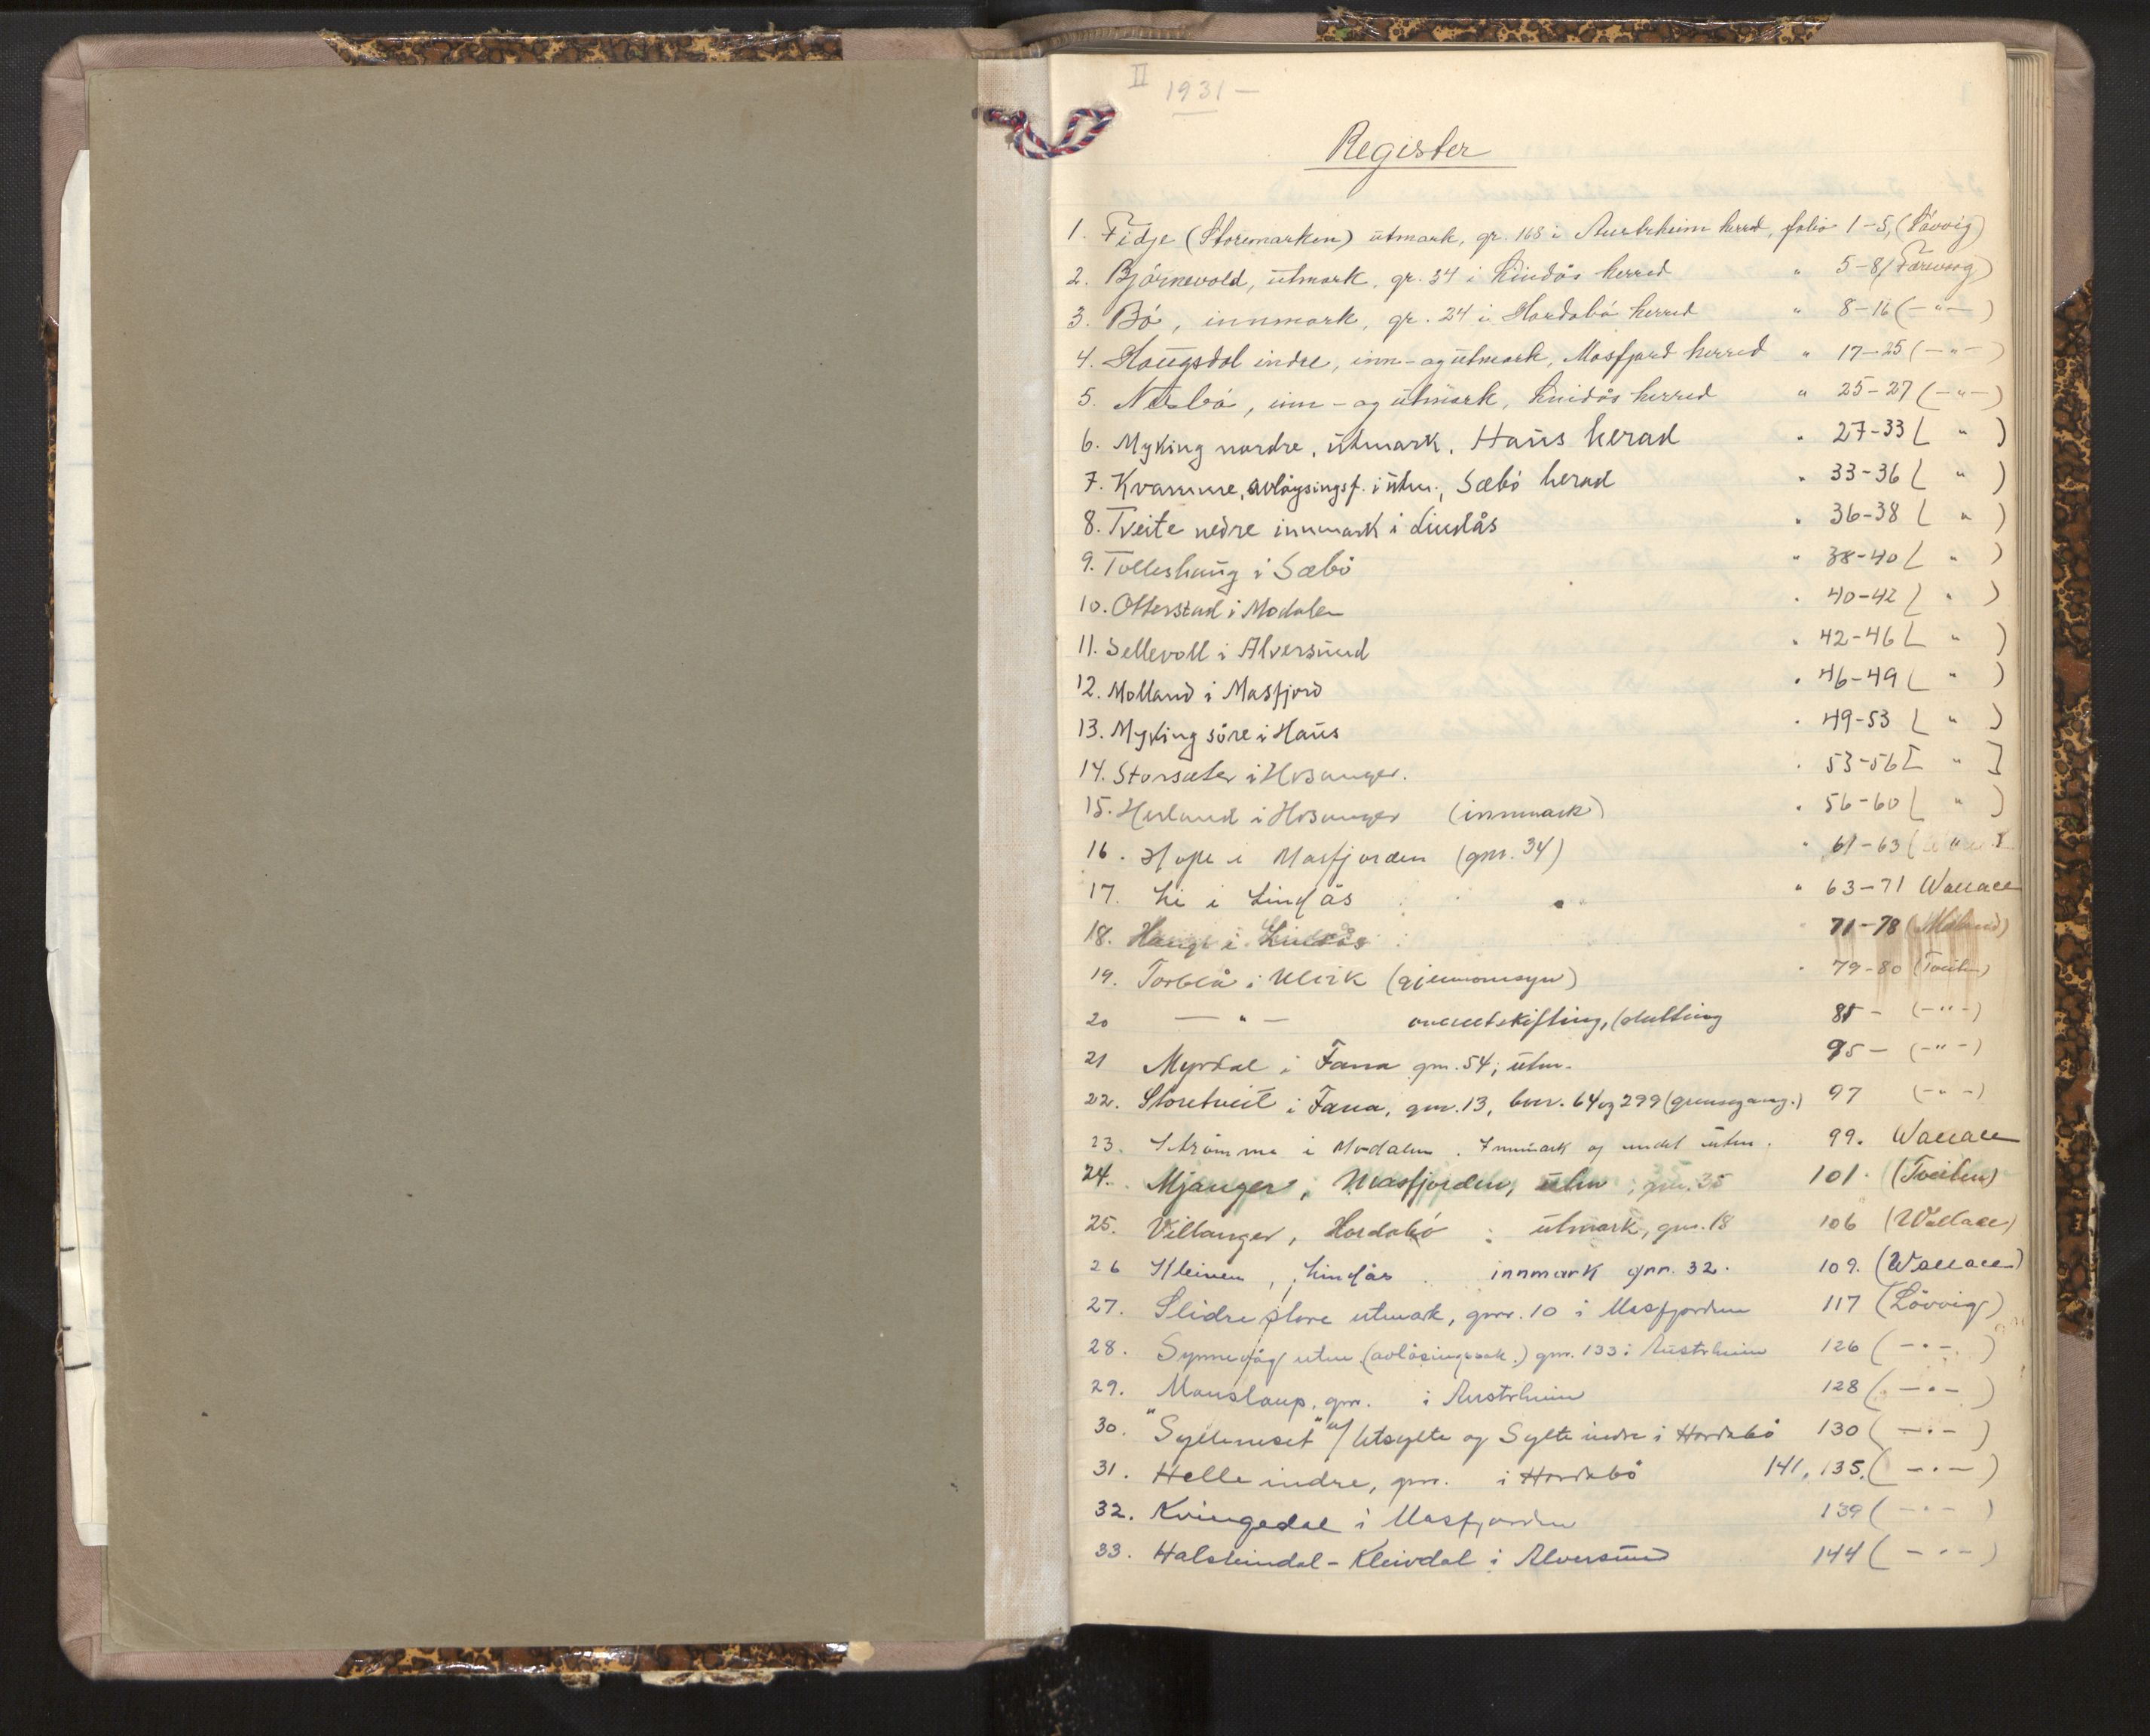 II
1931 —
Register
1. Fidje (Storemarken) utmark, gr. 168 i Austrheim herred, folio 1-5, (Lövvig)
2. Björnevold, utmark, gr. 34 i Lindås herred " 5-8 (Farevaag)
3. Bö, innmark, gr. 24 i Hordabö herred " 8-16 (-"-)
4. Haugsdal indre, inn- og utmark, Masfjord herred " 17-25 (-"-)
5. Nesbö, inn- og utmark, Lindås herred " 25-27 (-"-)
6. Myking nordre, utmark, Haus herad " 27-33 ( " )
7. Kvamme, avløysingsf. i utm., Sæbö herad " 33-36 ( " )
8. Tveite nedre innmark i Lindås " 36-38 ( " )
9. Tolleshaug i Sæbö " 38-40 ( " )
10. Otterstad i Modalen " 40-42 ( " )
11. Sellevoll i Alversund " 42-46 ( " )
12. Molland i Masfjord " 46-49 ( " )
13. Myking söre i Haus " 49-53 ( " )
14. Storsæter i Hosanger. " 53-56 [ " ]
15. Herland i Hosanger (innmark) " 56-60 ( " )
16. Hope i Masfjorden (gnr. 34) " 61-63
17. Li i Lindås " 63-71 Wallace
18. Hauge i Lindås " 71-78
19. Torblå i Ulvik (gjennomsyn) " 79-80 (Tveiten)
20 — " — overutskifting, slutting 85 - (-"-)
21 Myrdal i Fana gnr. 54, utm. 95 - (-"-)
22. Storetveit i Fana, gnr. 13, bnr. 64 og 299 (grensegang.) 97 (-"-)
23. Strömme i Modalen. Innmark og utm. 99. Wallace
24. Mjanger, Masfjorden, utm, gnr. 35 101. (Tveiten)
25. Villanger, Hordabö : utmark, gnr. 18 106 (Wallace)
26 Kleiven, Lindås innmark gnr. 32. 109. (Wallace)
27. Slidre store utmark, gnr. 10 i Masfjorden 117 (Lövvig)
28. Synnevåg utm. (avløsingssak.) gnr. 133 i Austrheim 126 (-"-)
29. Monslaup, gnr. i Austrheim 128 (-"-)
30. "Sylteneset" u/ Utsylte og Sylte indre i Hordabö 130 (-"-)
31. Helle indre, gnr. i Hordabö 141, 135. (-"-)
32. Kvingedal i Masfjorden 139 (-"-)
33. Halsteindal - Kleivdal i Alversund 144 (-"-)